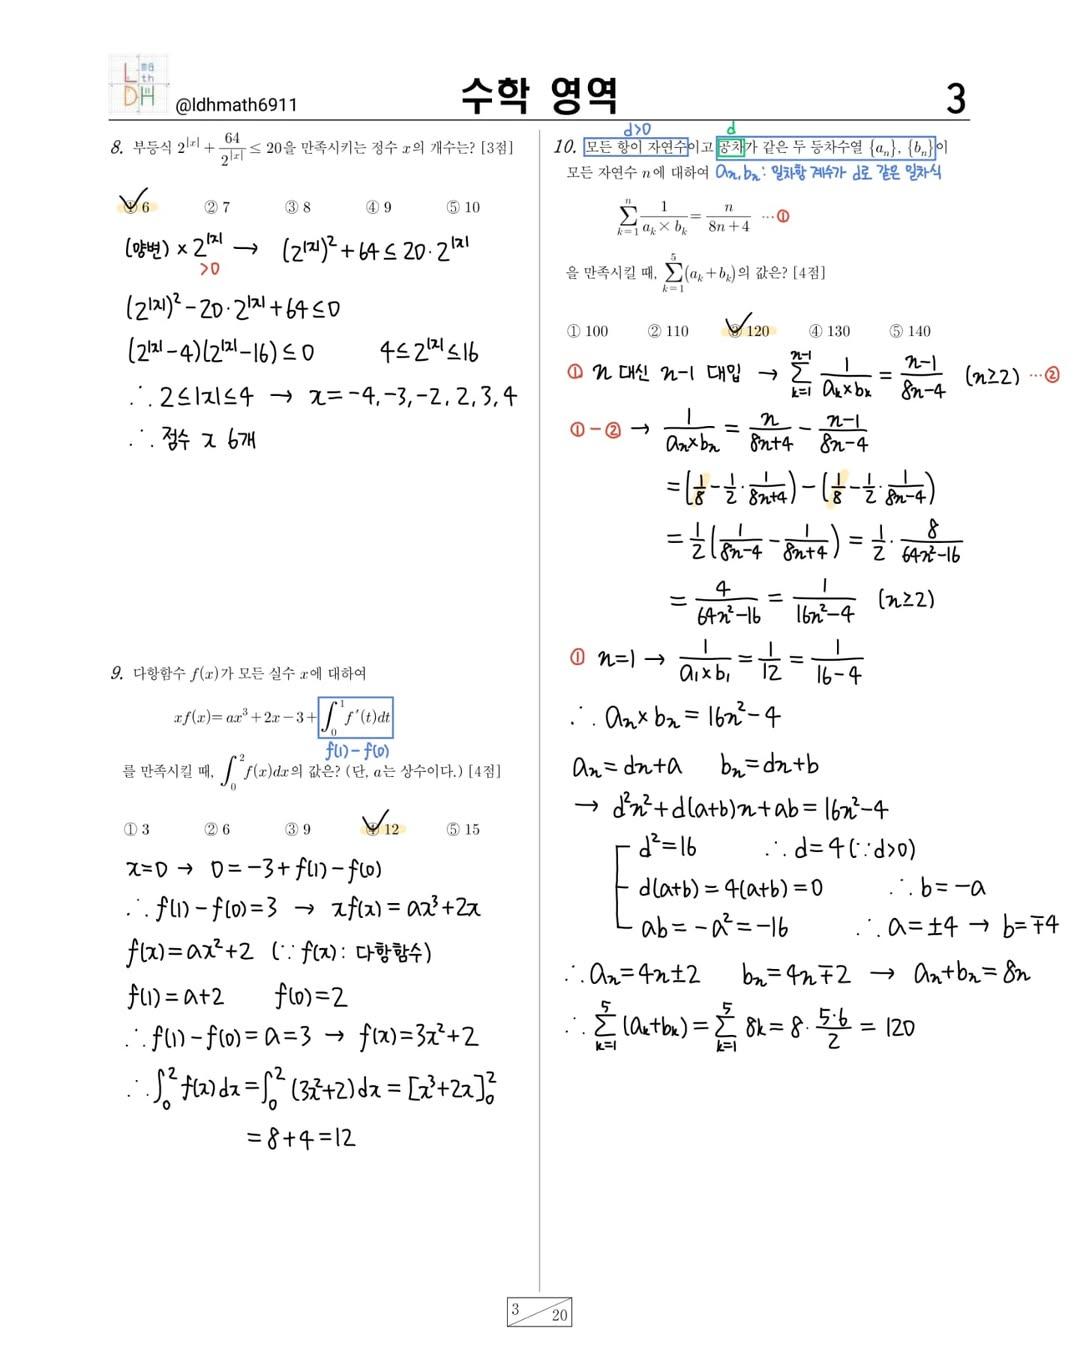 L ma th DH
@ldhmath6911
수학 영역
3
8. 부등식 2^{|x|} + 64/2^{|x|} ≤ 20을 만족시키는 정수 x의 개수는? [3점]
① 6 ② 7 ③ 8 ④ 9 ⑤ 10
(양변) × 2^{|x|} → (2^{|x|})² + 64 ≤ 20·2^{|x|}
>0
(2^{|x|})² - 20·2^{|x|} + 64 ≤ 0
(2^{|x|} - 4)(2^{|x|} - 16) ≤ 0 4 ≤ 2^{|x|} ≤ 16
∴ 2 ≤ |x| ≤ 4 → x = -4, -3, -2, 2, 3, 4
∴ 점수 x 6개
9. 다항함수 f(x)가 모든 실수 x에 대하여
xf(x) = ax³ + 2x - 3 + ∫₀¹ f′(t)dt
f(1) - f(0)
를 만족시킬 때, ∫₀² f(x)dx의 값은? (단, a는 상수이다.) [4점]
① 3 ② 6 ③ 9 ④ 12 ⑤ 15
x=0 → 0 = -3 + f(1) - f(0)
∴ f(1) - f(0) = 3 → xf(x) = ax³ + 2x
f(x) = ax² + 2 (∵ f(x): 다항함수)
f(1) = a+2 f(0) = 2
∴ f(1) - f(0) = a = 3 → f(x) = 3x² + 2
∴ ∫₀² f(x)dx = ∫₀² (3x²+2)dx = [x³+2x]₀²
= 8 + 4 = 12
d>0 d
10. 모든 항이 자연수이고 공차가 같은 두 등차수열 {aₙ}, {bₙ}이
모든 자연수 n에 대하여 aₙ, bₙ : 일차항 계수가 d로 같은 일차식
∑_{k=1}^{n} 1/(aₖ × bₖ) = n/(8n+4) ⋯①
을 만족시킬 때, ∑_{k=1}^{5} (aₖ + bₖ)의 값은? [4점]
① 100 ② 110 ③ 120 ④ 130 ⑤ 140
① n 대신 n-1 대입 → ∑_{k=1}^{n-1} 1/(aₖ×bₖ) = (n-1)/(8n-4) (n≥2) ⋯②
①-② → 1/(aₙ×bₙ) = n/(8n+4) - (n-1)/(8n-4)
= (1/8 - 1/2 · 1/(8n+4)) - (1/8 - 1/2 · 1/(8n-4))
= 1/2 (1/(8n-4) - 1/(8n+4)) = 1/2 · 8/(64n²-16)
= 4/(64n²-16) = 1/(16n²-4) (n≥2)
① n=1 → 1/(a₁×b₁) = 1/12 = 1/(16-4)
∴ aₙ×bₙ = 16n²-4
aₙ = dn+a bₙ = dn+b
→ d²n² + d(a+b)n + ab = 16n²-4
d² = 16 ∴ d = 4 (∵ d>0)
d(a+b) = 4(a+b) = 0 ∴ b = -a
ab = -a² = -16 ∴ a = ±4 → b = ∓4
∴ aₙ = 4n±2 bₙ = 4n∓2 → aₙ+bₙ = 8n
∴ ∑_{k=1}^{5} (aₖ+bₖ) = ∑_{k=1}^{5} 8k = 8 · 5·6/2 = 120
3 / 20